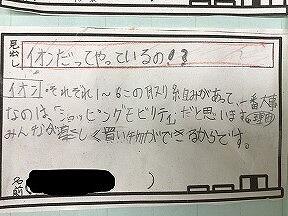 見出し
イオンだってやっているの!?
イオンそれぞれ1~6この取り組みがあって、一番大事
なのは、「ショッピングモビリティ」だと思います。理由
みんなが楽しく買い物ができるからです。
名前